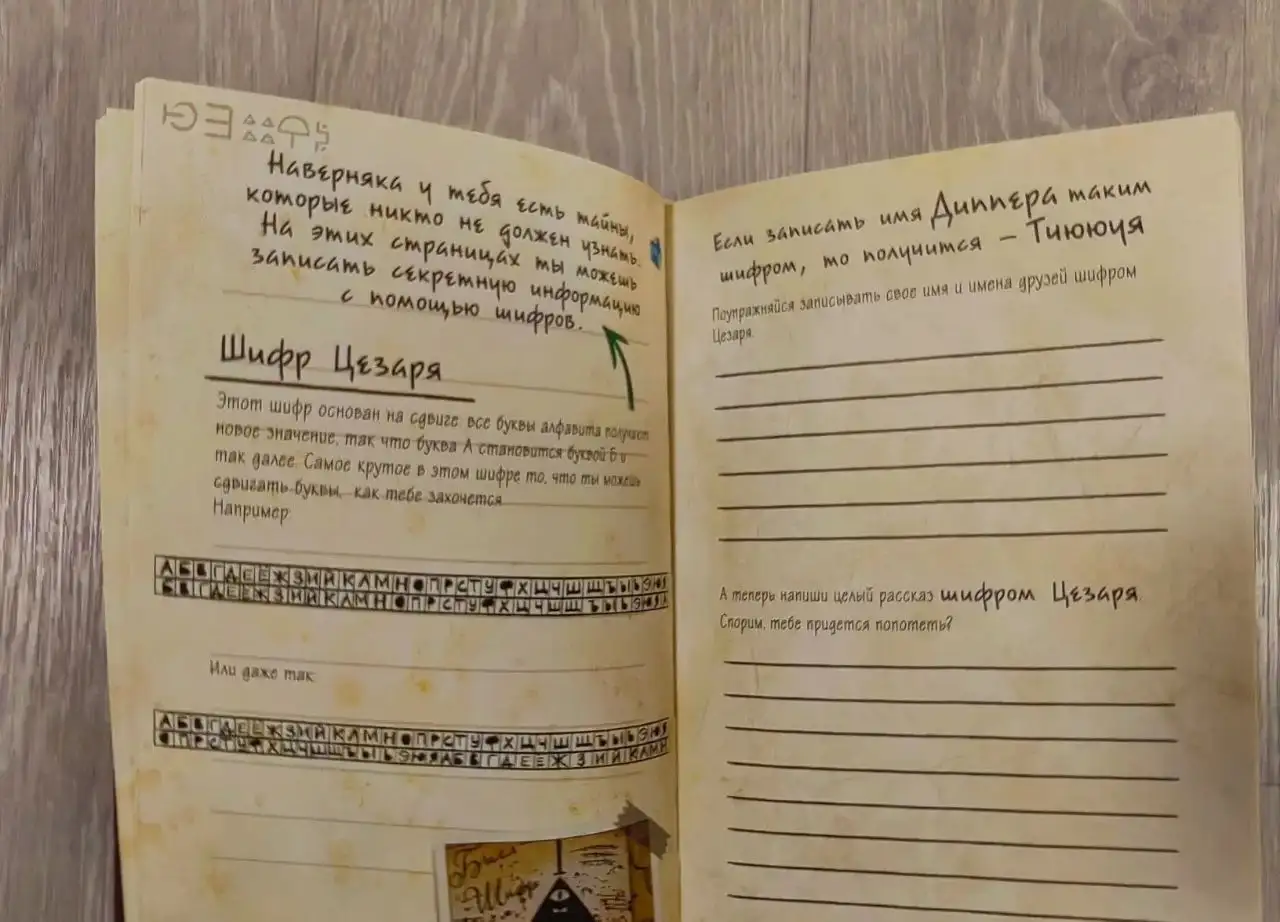 Наверняка у тебя есть тайны,
которые никто не должен узнать.
На этих страницах ты можешь
записать секретную информацию
с помощью шифров.
Шифр Цезаря
Этот шифр основан на сдвиге: все буквы алфавита получают
новое значение, так что буква А становится буквой Б и
так далее. Самое крутое в этом шифре то, что ты можешь
сдвигать буквы, как тебе захочется.
Например:
АБВГДЕЁЖЗИЙКЛМНОПРСТУФХЦЧШЩЪЫЬЭЮЯ
БВГДЕЁЖЗИЙКЛМНОПРСТУФХЦЧШЩЪЫЬЭЮЯА
Или даже так:
АБВГДЕЁЖЗИЙКЛМНОПРСТУФХЦЧШЩЪЫЬЭЮЯ
ОПРСТУФХЦЧШЩЪЫЬЭЮЯАБВГДЕЁЖЗИЙКЛМН
Билл
Шифр
Если записать имя Диппера таким
шифром, то получится – Тчююуя
Поупражняйся записывать свое имя и имена друзей шифром
Цезаря.
А теперь напиши целый рассказ шифром Цезаря.
Спорим, тебе придется попотеть?